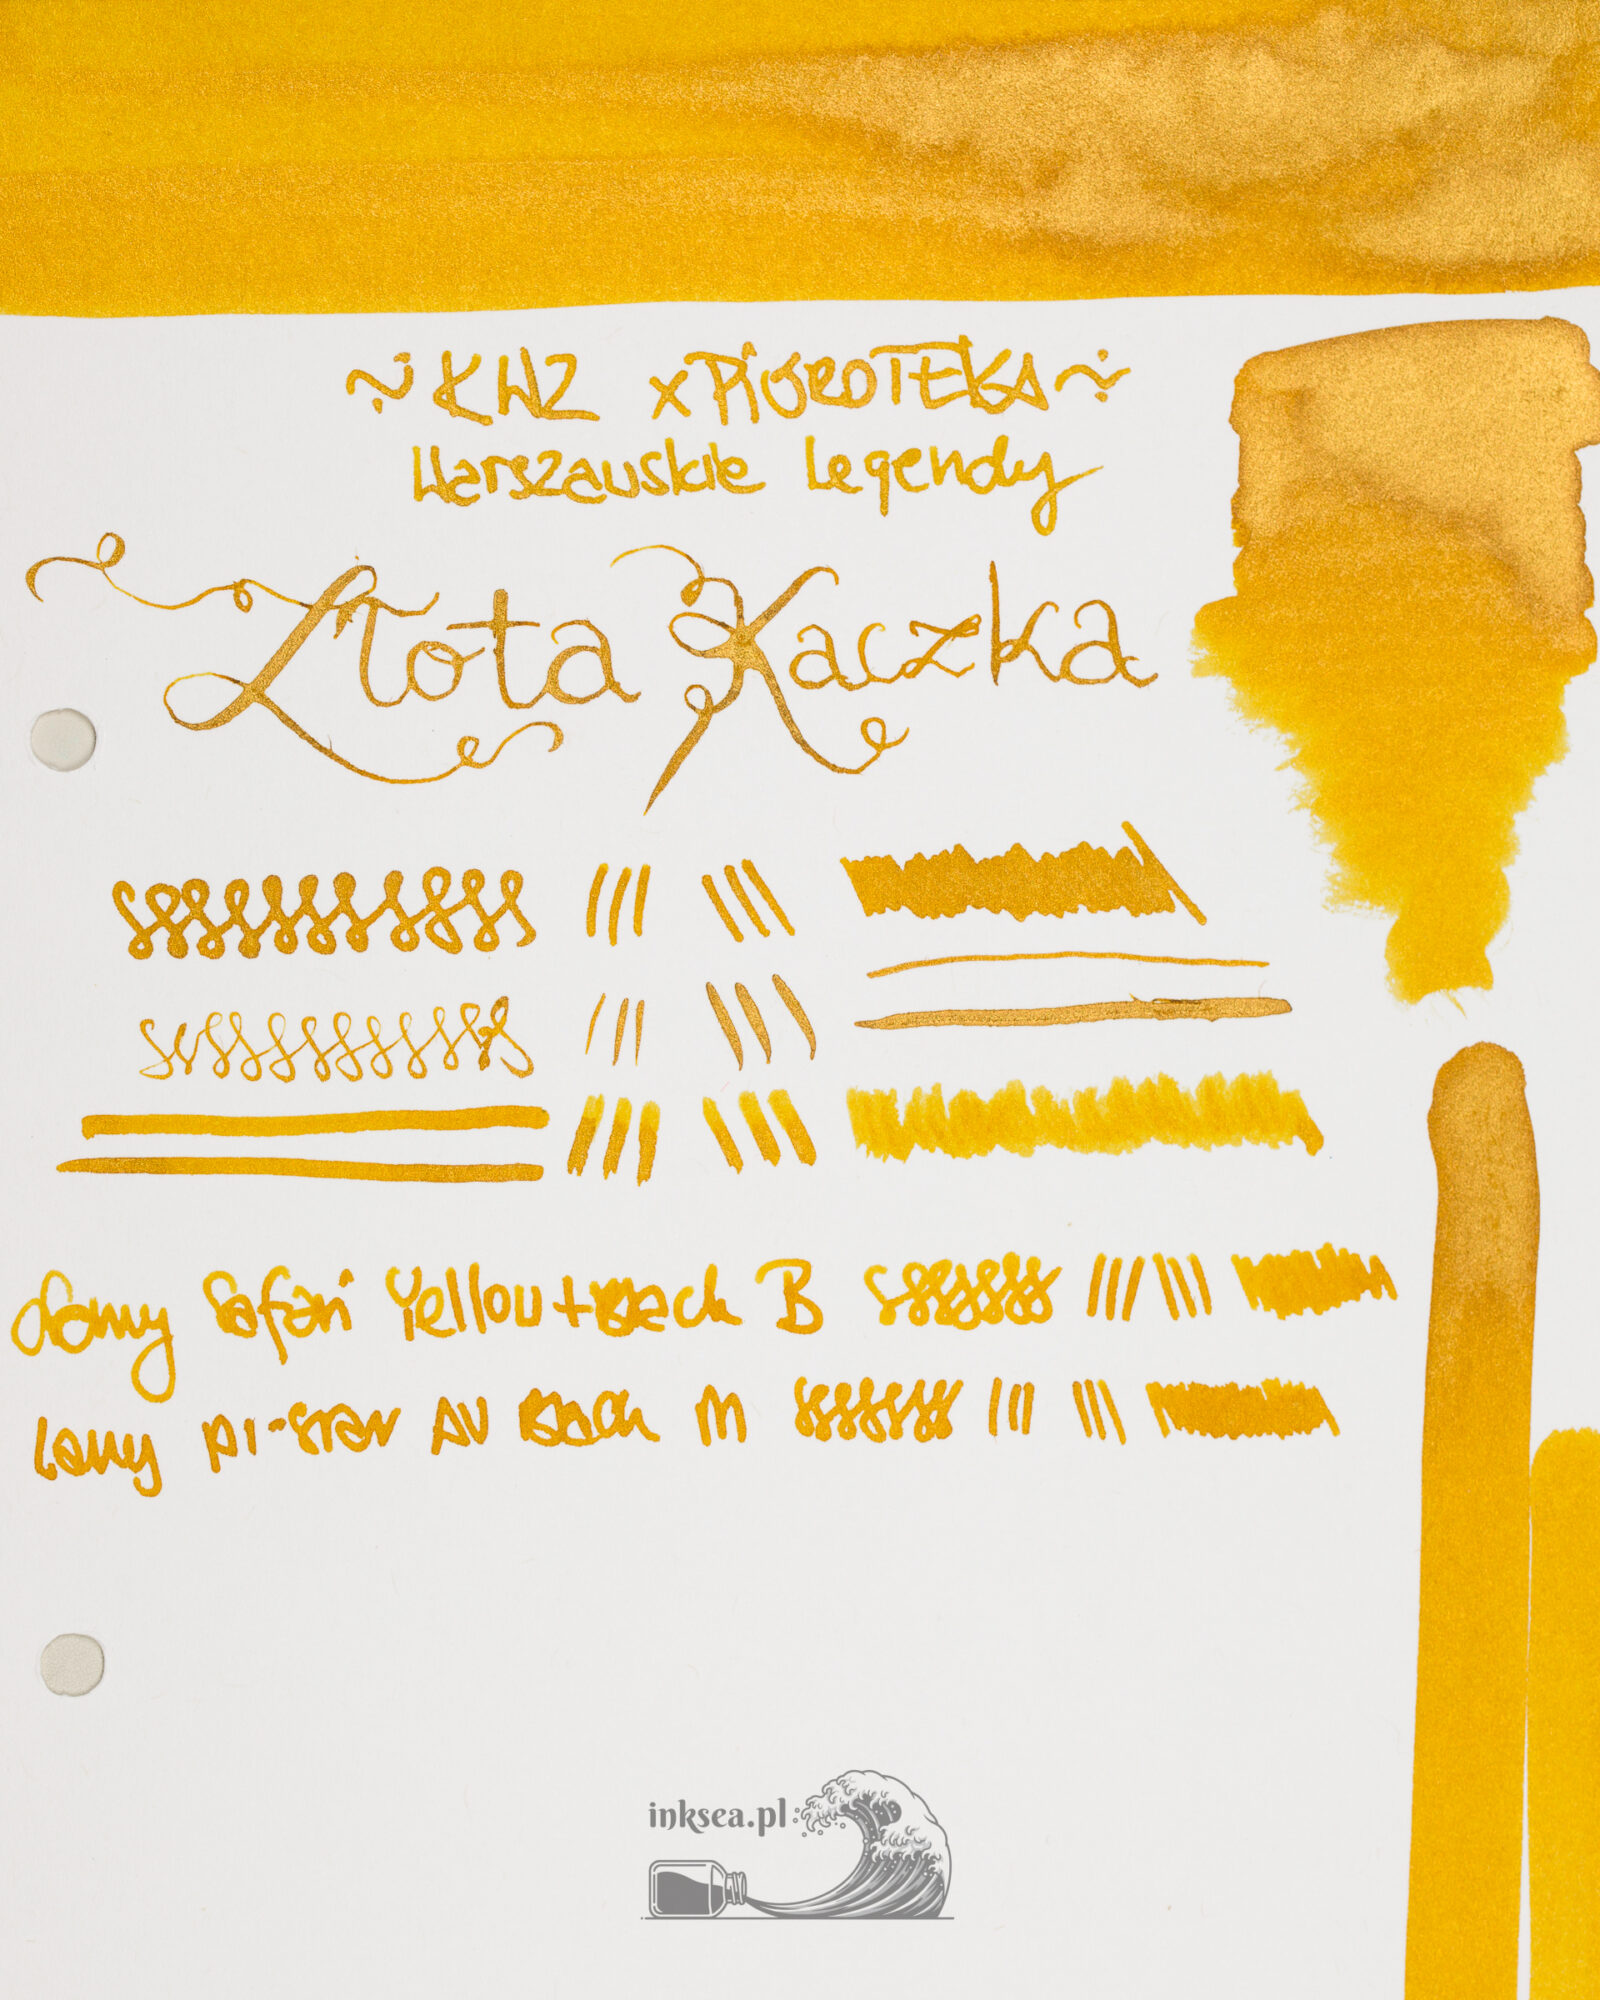 ~ KWZ x PiÓROTEKA ~
Warszawskie Legendy
Złota Kaczka
Lamy Safari Yellow + Black B
Lamy Al-Star AV Black M
inksea.pl